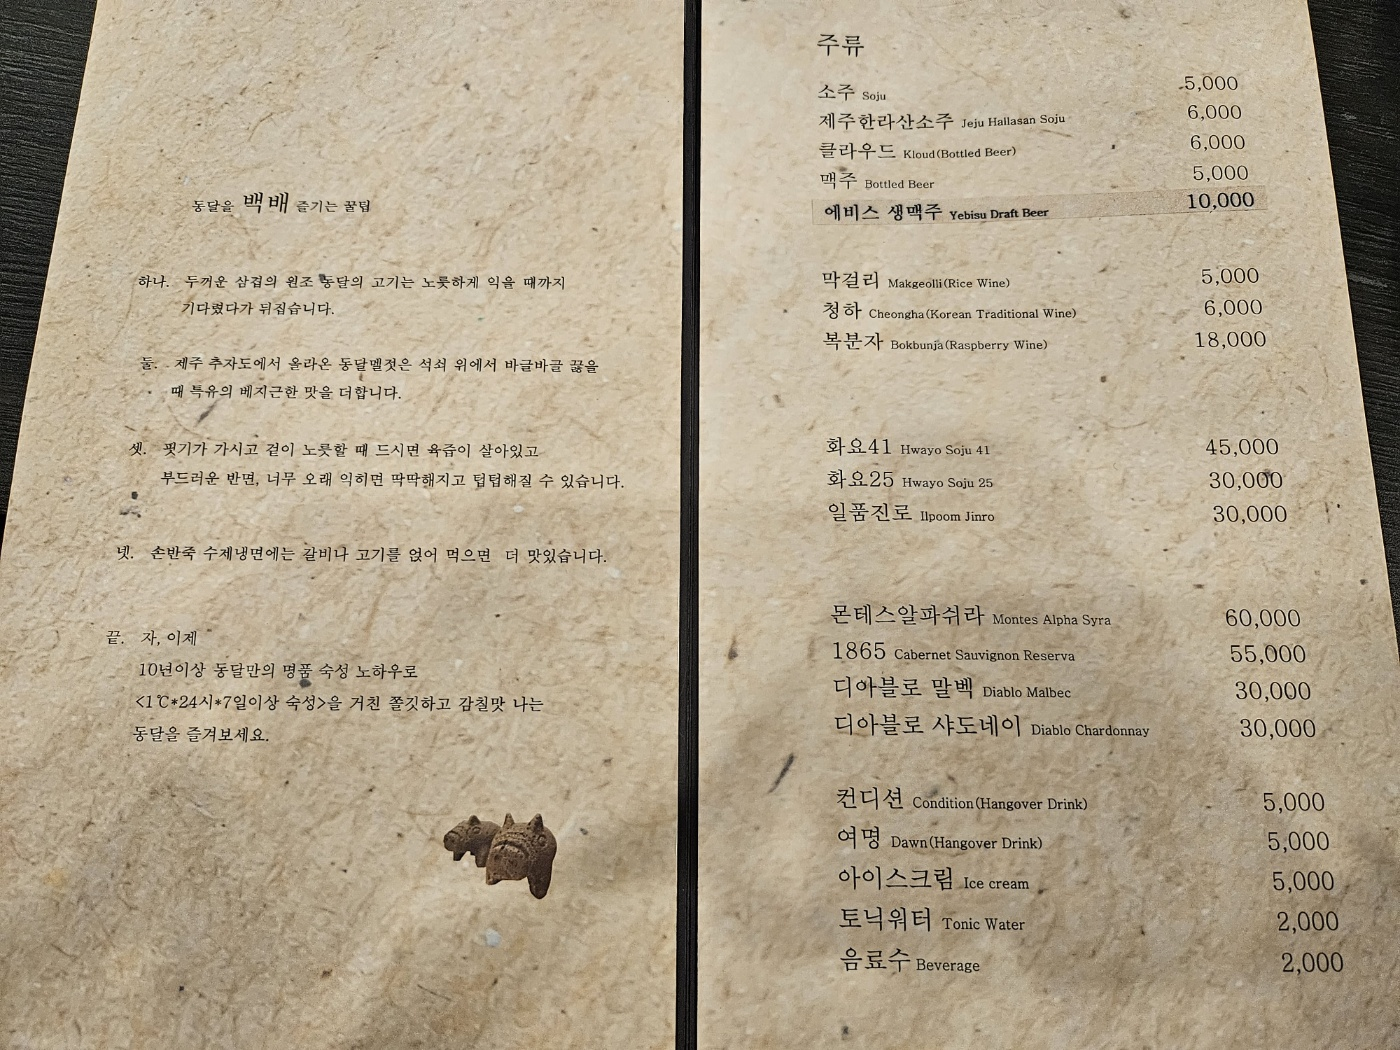 동달을 백배 즐기는 꿀팁
하나. 두꺼운 삼겹의 원조 동달의 고기는 노릇하게 익을 때까지
기다렸다가 뒤집습니다.
둘. 제주 추자도에서 올라온 동달멜젓은 석쇠 위에서 바글바글 끓을
때 특유의 베지근한 맛을 더합니다.
셋. 핏기가 가시고 겉이 노릇할 때 드시면 육즙이 살아있고
부드러운 반면, 너무 오래 익히면 딱딱해지고 텁텁해질 수 있습니다.
넷. 손반죽 수제냉면에는 갈비나 고기를 얹어 먹으면 더 맛있습니다.
끝. 자, 이제
10년이상 동달만의 명품 숙성 노하우로
<1℃*24시*7일이상 숙성>을 거친 쫄깃하고 감칠맛 나는
동달을 즐겨보세요.
주류
소주 Soju 5,000
제주한라산소주 Jeju Hallasan Soju 6,000
클라우드 Kloud(Bottled Beer) 6,000
맥주 Bottled Beer 5,000
에비스 생맥주 Yebisu Draft Beer 10,000
막걸리 Makgeolli(Rice Wine) 5,000
청하 Cheongha(Korean Traditional Wine) 6,000
복분자 Bokbunja(Raspberry Wine) 18,000
화요41 Hwayo Soju 41 45,000
화요25 Hwayo Soju 25 30,000
일품진로 Ilpoom Jinro 30,000
몬테스알파쉬라 Montes Alpha Syra 60,000
1865 Cabernet Sauvignon Reserva 55,000
디아블로 말벡 Diablo Malbec 30,000
디아블로 샤도네이 Diablo Chardonnay 30,000
컨디션 Condition(Hangover Drink) 5,000
여명 Dawn(Hangover Drink) 5,000
아이스크림 Ice cream 5,000
토닉워터 Tonic Water 2,000
음료수 Beverage 2,000